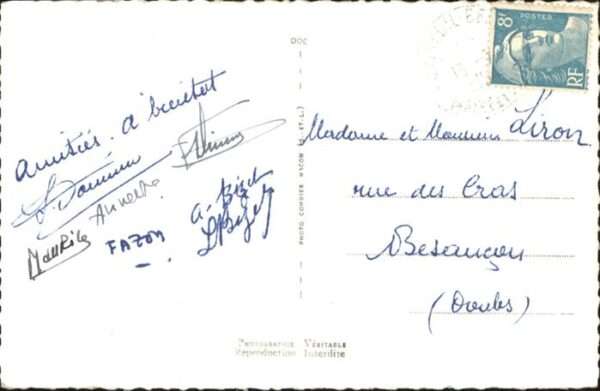 Amitiés. A bientôt
Annette
Maurice
FAZON
A. Bizet
L Bizet
DOC
PHOTO COMBIER MACON (S.-ET-L.)
8F
POSTES
RF
Madame et Monsieur Liron
rue des Cras
Besançon
(Doubs)
Photographie Véritable
Reproduction Interdite